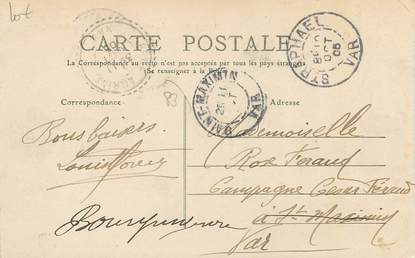 lot
CARTE POSTALE
La Correspondance au recto n'est pas acceptée par tous les pays étrangers
(Se renseigner à la Poste)
Correspondance
Adresse
ST RAPHAEL
VAR
OCT
05
SAINT-MAXIMIN
VAR
Bons baisers
Louis
Mademoiselle
Rose Feraud
Campagne Cesar Féraud
à St Maximin
Var